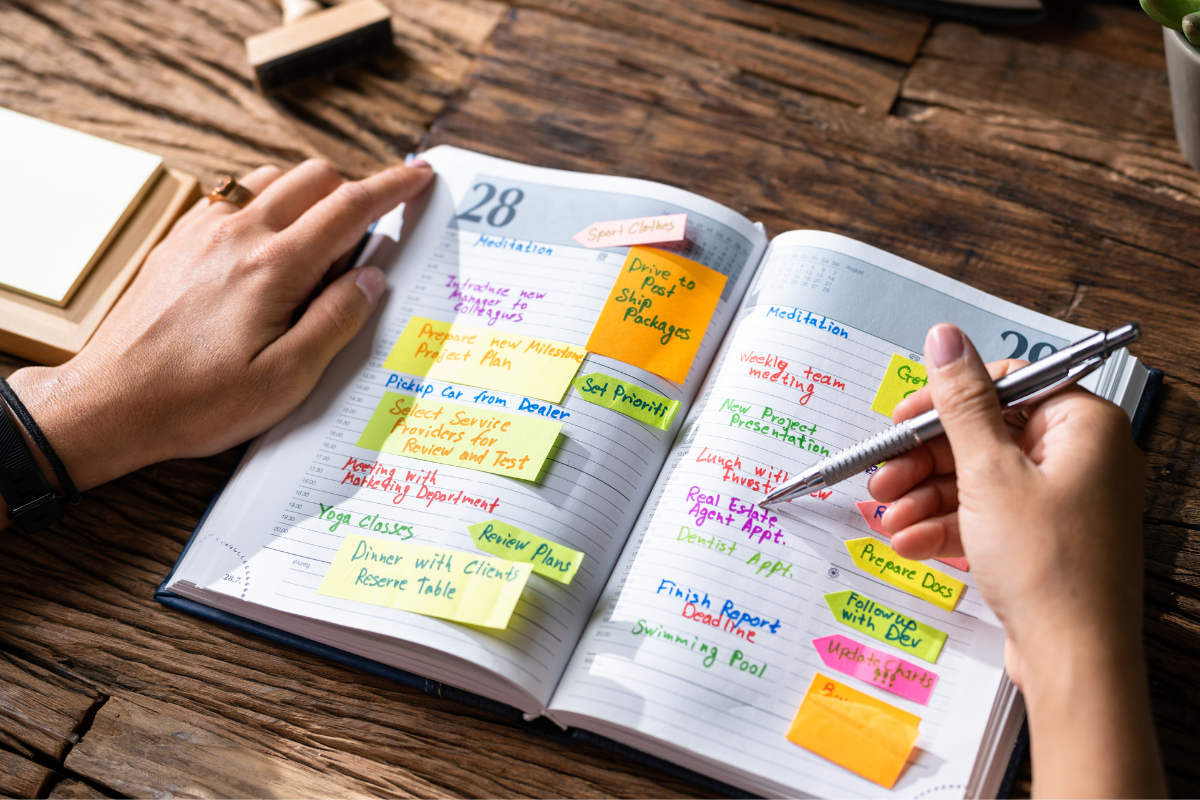 28
Sport Clothes
Meditation
Drive to
Post
Ship
Packages
Introduce new
Manager to
Colleagues
Prepare new Milestone
Project Plan
Set Prioriti
Pickup Car from Dealer
Select Service
Providers for
Review and Test
Meeting with
Marketing Department
Yoga Classes
Review Plans
Dinner with Clients
Reserve Table
28.7.
August
29
Meditation
Weekly team
meeting
Get
New Project
Presentation
Lunch with
Invest
Real Estate
Agent Appt.
Dentist Appt.
Prepare Docs
Finish Report
Deadline
Follow up
with Dev
Swimming Pool
Update Charts
!!!